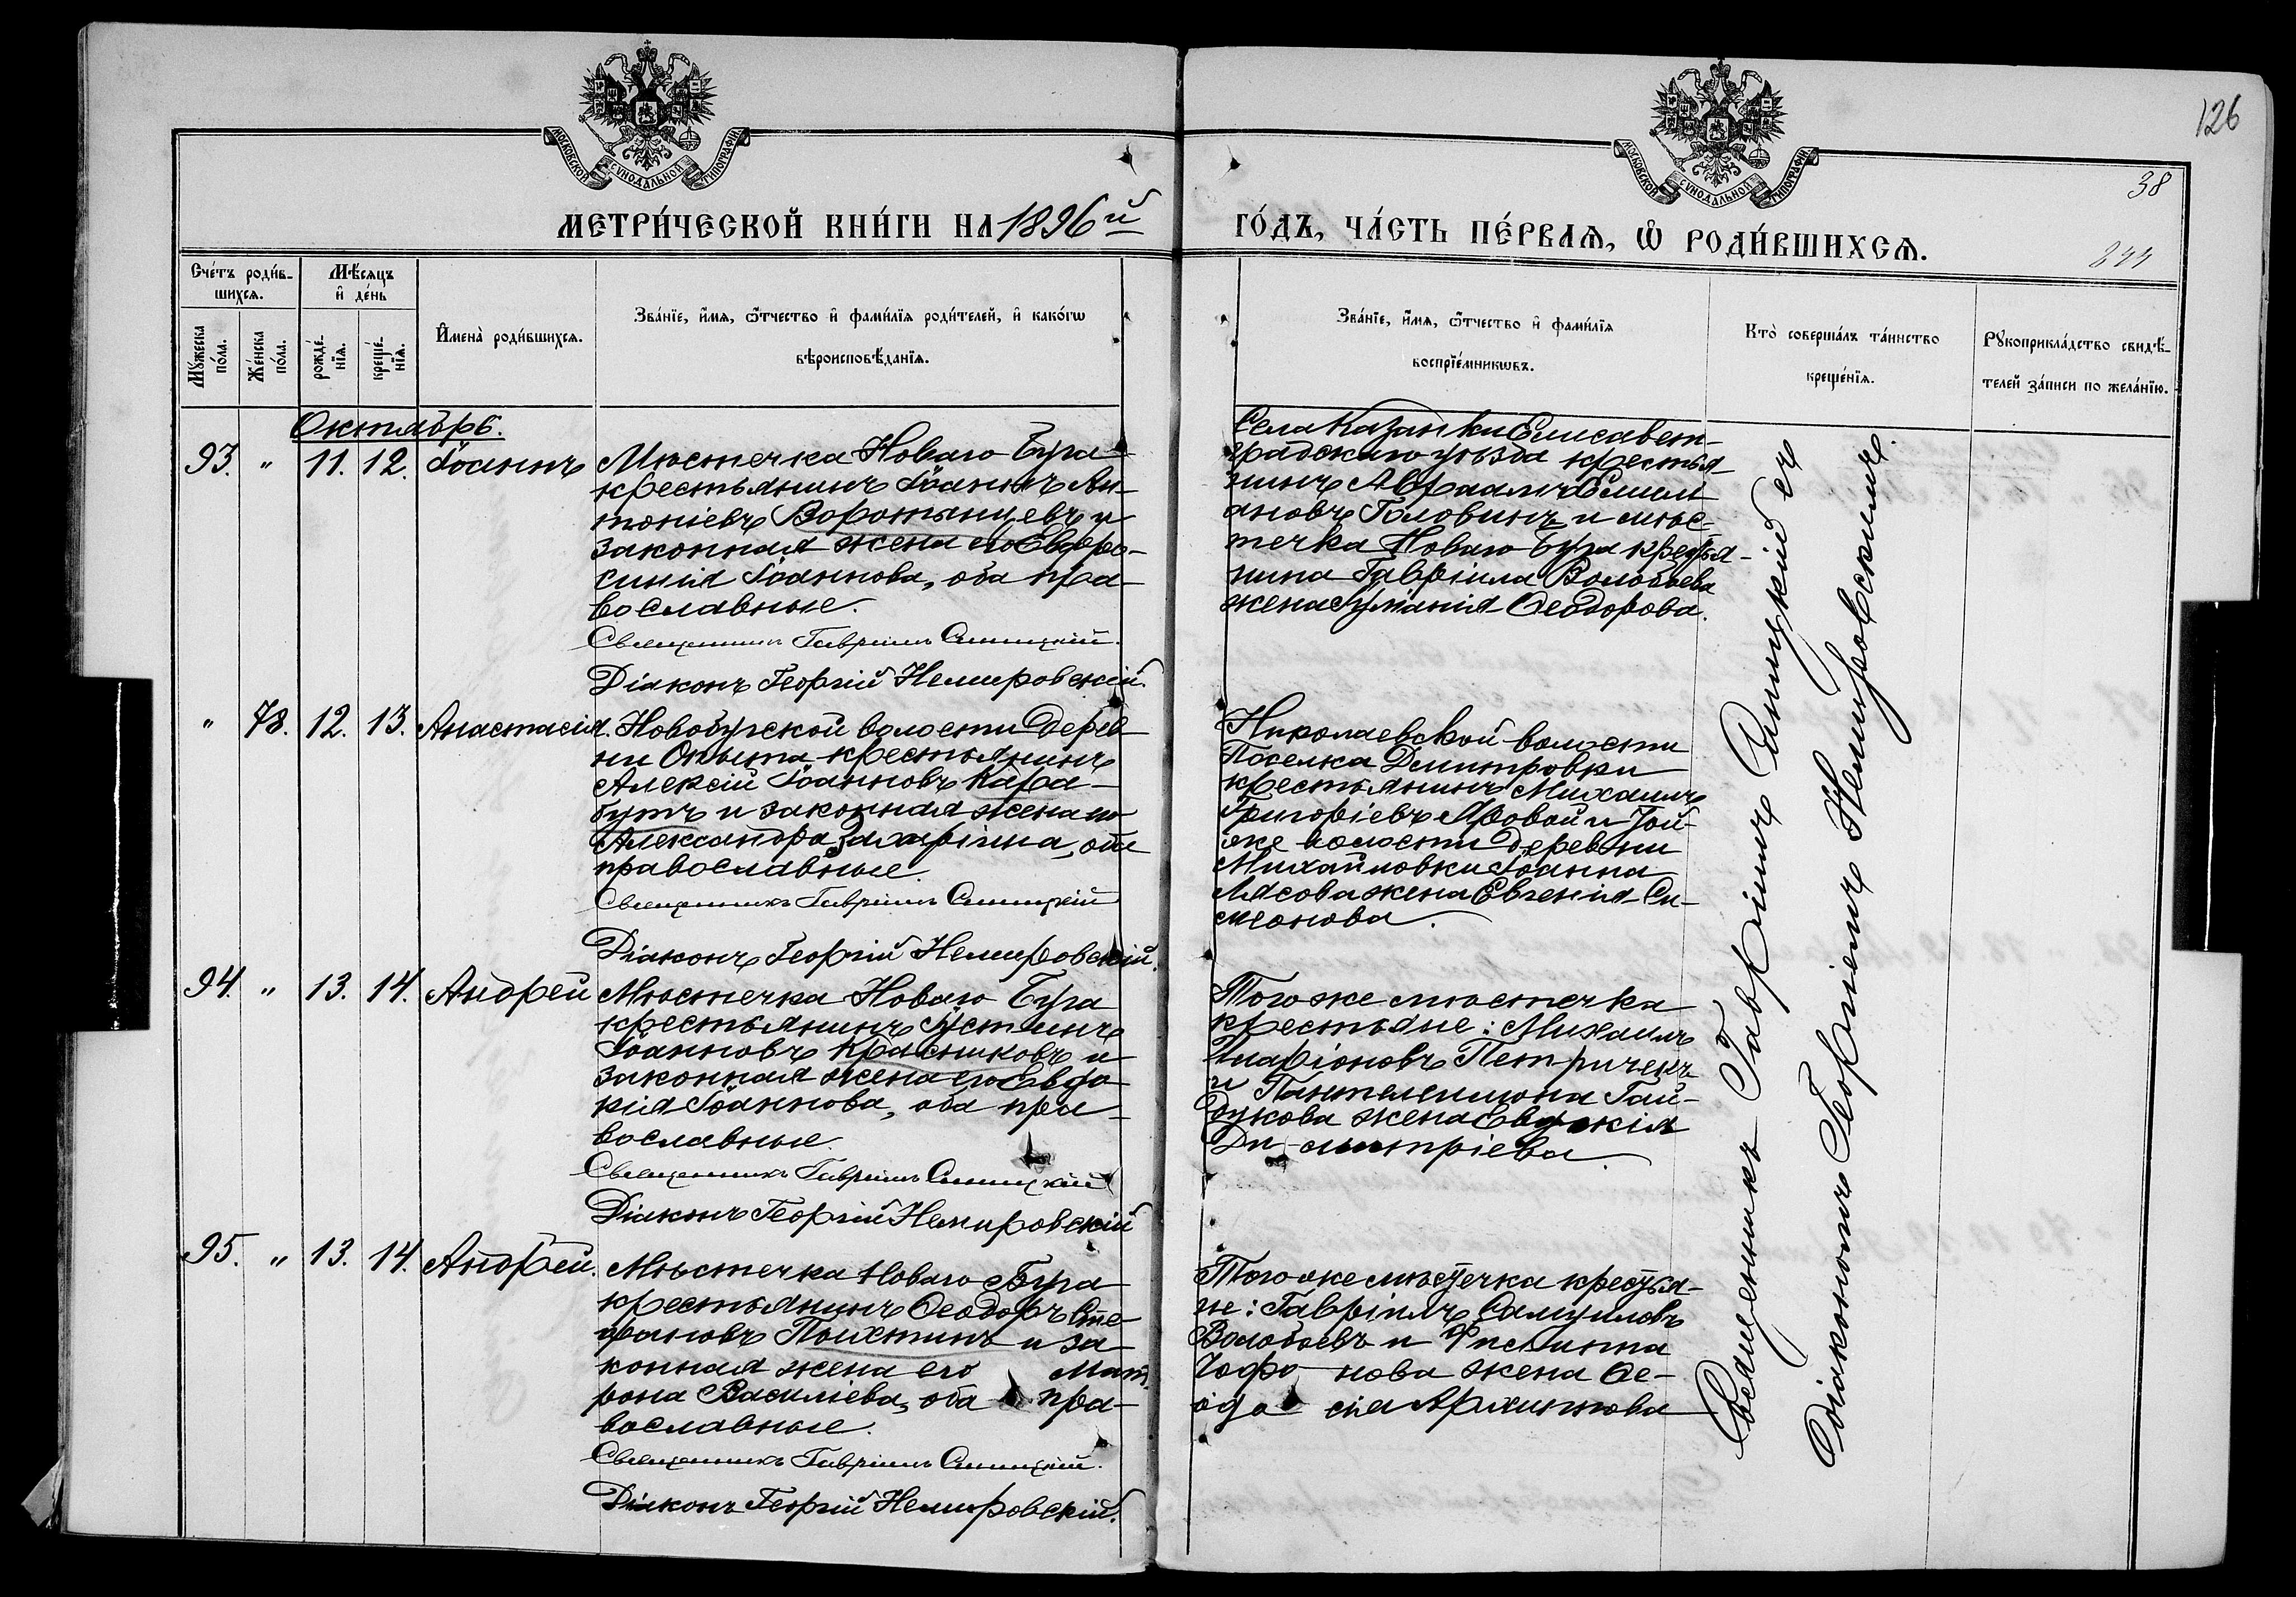 126
38
244
МОСКОВСКОЙ СѴНОДАЛЬНОЙ ТИПОГРАФІИ
МОСКОВСКОЙ СѴНОДАЛЬНОЙ ТИПОГРАФІИ
МЕТРИ́ЧЕСКОЙ КНИ́ГИ НА 1896й
ГО́ДЪ, ЧА́СТЬ ПЕ́РВАѦ, Ѽ РОДИ́ВШИХСѦ.
Сче́тъ роди́в-
шихсѧ.
Мѣ́сѧцъ
и҆ де́нь
Мꙋ́жеска
по́ла.
Же́нска
по́ла.
рожде́-
нїѧ.
креще́-
нїѧ.
И҆мена̀ роди́вшихсѧ.
Зва́нїе, и҆́мѧ, ѻ҆́тчество и҆ фами́лїѧ роди́телей, и҆ како́гѡ
вѣроисповѣ́данїѧ.
Зва́нїе, и҆́мѧ, ѻ҆́тчество и҆ фами́лїѧ
воспрїе́мникѡвъ.
Кто̀ соверша́лъ та́инство
креще́нїѧ.
Рꙋкоприкла́дство свидѣ́-
телей за́писи по жела́нїю.
Октябрь.
93. " 11. 12. Іоаннъ
Мѣстечка Новаго Буга
крестьянинъ Іоаннъ Ан-
тоніевъ Воротынцевъ и
законная жена его Евфро-
синія Іоаннова, оба пра-
вославные.
Священникъ Гавріилъ Синицкій.
Діаконъ Георгій Немировскій.
Села Казанки Елисавет-
градскаго уѣзда крестья-
нинъ Авраамъ Емили-
ановъ Головинъ и мѣс-
течка Новаго Буга крестья-
нина Гавріила Волобоева
жена Іуліанія Ѳеодорова.
" 78. 12. 13. Анастасія.
Новобугской волости Дерев-
ни Опыта крестьянинъ
Алексій Іоанновъ Кара-
бутъ и законная жена его
Александра Захаріина, оба
православные.
Священникъ Гавріилъ Синицкій
Діаконъ Георгій Немировскій.
Николаевской волости
Поселка Димитровки
крестьянинъ Михаилъ
Григоріевъ Яровой и той-
же волости деревни
Михайловки Іоанна
Лясова жена Евгенія Си-
меонова.
94. " 13. 14. Андрей
Мѣстечка Новаго Буга
крестьянинъ Іустинъ
Іоанновъ Красниковъ и
законная жена его Евдо-
кія Іоаннова, оба пра-
вославные.
Священникъ Гавріилъ Синицкій
Діаконъ Георгій Немировскій
Того же мѣстечка
крестьяне: Михаилъ
Иларіоновъ Петриченъ
и Пантелеимона Гай-
дукова жена Евдокія
Ди-митріева.
95. " 13. 14. Андрей.
Мѣстечка Новаго Буга
крестьянинъ Ѳеодоръ Сте-
фановъ Похтинъ и за-
конная жена его Мат-
рона Василіева, оба пра-
вославные.
Священникъ Гавріилъ Синицкій.
Діаконъ Георгій Немировскій.
Того же мѣстечка крестья-
не: Гавріилъ Самуиловъ
Волобоевъ и Филиппа
нова жена Ѳе-
одосія Архиппова
Священникъ Гавріилъ Синицкій съ
Діакономъ Георгіемъ Немировскимъ.